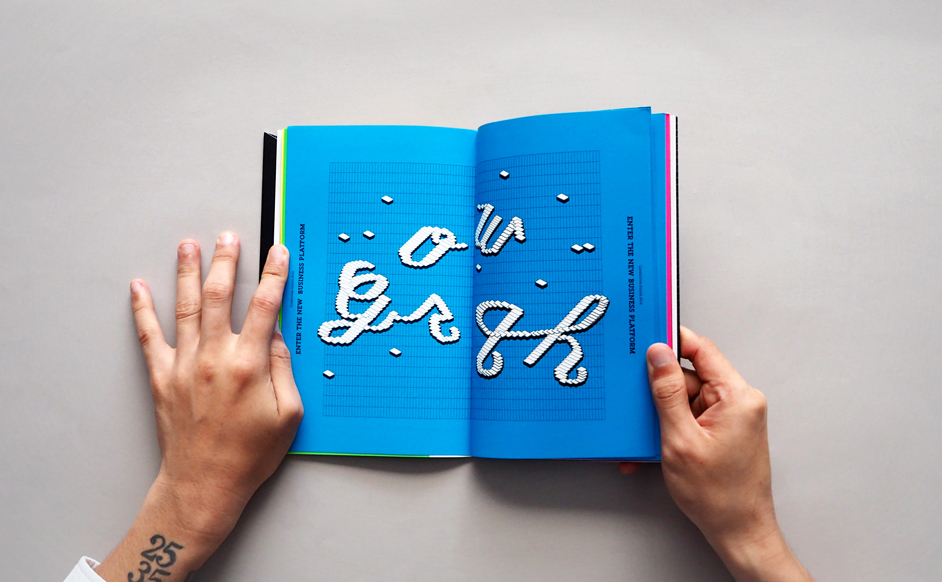 ENTER THE NEW BUSINESS PLATFORM
ow
Gr th
ENTER THE NEW BUSINESS PLATFORM
25
35